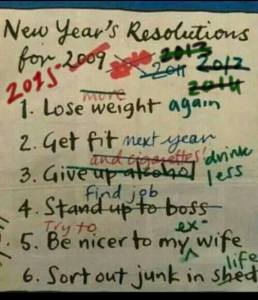 New Year's Resolutions
for 2009 2010 2011 2012 2013 2014
2015
more
1. Lose weight again
2. Get fit next year
and cigarettes!
3. Give up alcohol drink less
find job
4. Stand up to boss
Try to ex-
5. Be nicer to my wife
life
6. Sort out junk in shed